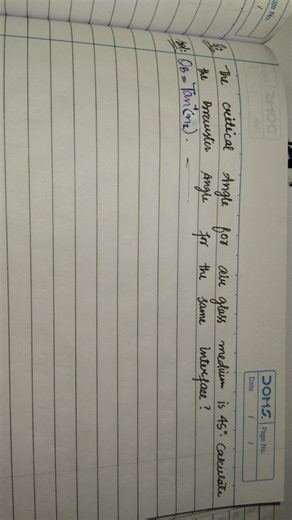 DOMS. Page No.
Date / /
Q: The critical Angle for air glass medium is 45°. Calculate
the brewster Angle for the same interface?
Sol: θB = Tan⁻¹(n₂).